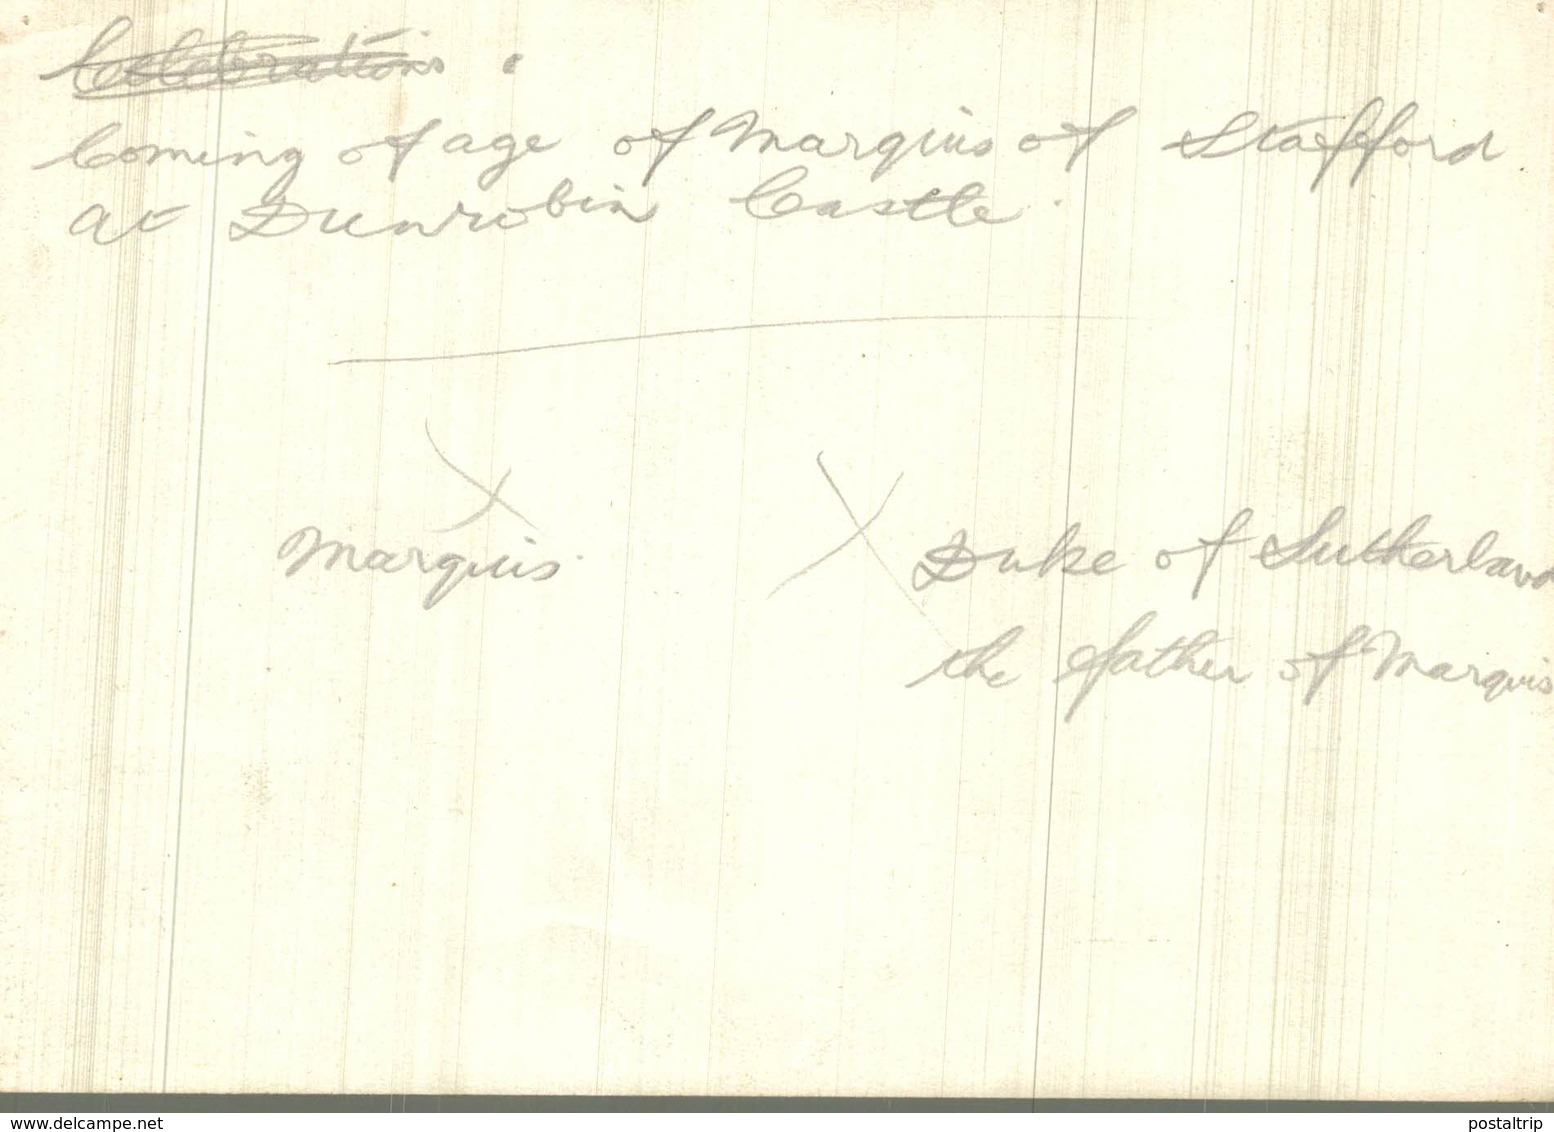 Celebrations.
Coming of age of Marquis of Stafford
at Dunrobin Castle.
Marquis.
Duke of Sutherland
the father of Marquis
www.delcampe.net
postaltrip